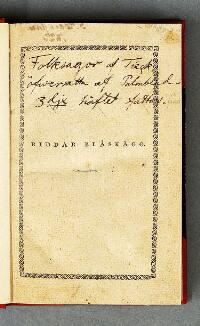 Folksagor af Tieck
öfwersatta af Palmblad
3dje häftet
RIDDAR BLÅSKÄGG.